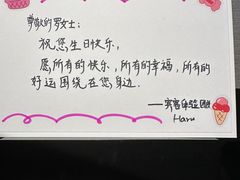 尊敬的罗女士：
祝您生日快乐，
愿所有的快乐，所有的幸福，所有的
好运围绕在您身边。
——宾客体验团队
Haru